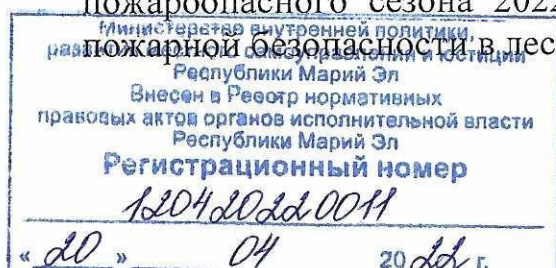 пожароопасного сезона 202
Министерство внутренней политики,
развития местного самоуправления и юстиции
пожарной безопасности в лес
Республики Марий Эл
Внесен в Реестр нормативных
правовых актов органов исполнительной власти
Республики Марий Эл
Регистрационный номер
120420220011
« 20 » 04 20 22 г.